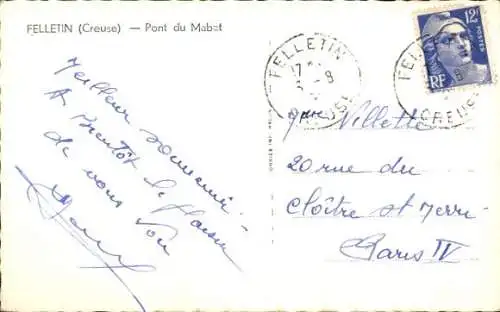 FELLETIN (Creuse) — Pont du Mabat
Meilleur souvenir.
A bientôt le plaisir
de vous voir
FELLETIN
17
8
CREUSE
12F
POSTES
RF
FELLETIN
8
CREUSE
Villette
20 rue du
Cloître St Merri
Paris IV